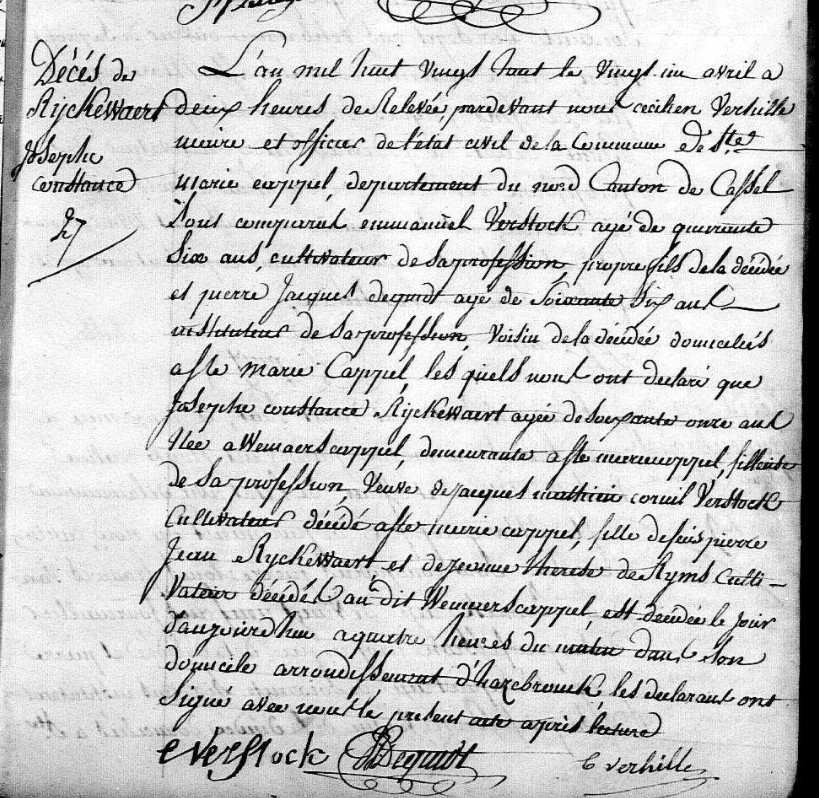 Décés de
Rijckewaert
Josephe
constance
27
L'an mil huit vingt huit le vingt un avril a
deux heures de Relevée, pardevant nous cecilien Verhille
maire et officier de l'état civil de la Commune de Ste
marie cappel, departement du nord Canton de Cassel
Sont comparut emmanüel Verstock agé de quarante
Six ans, cultivateur de Sa profession, propre fils de la décidée
et pierre Jacques dequidt agé de Soixante Six ans
instituteur de Sa profession, Voisin de la décidée domiciliés
a Ste Marie Cappel, les quels nous ont declaré que
Josephe constance Rijckewaert agée de soixante onze ans
Née a Wemaerscappel, demeurante a Ste mariecappel, fileuse
de Sa profession, Veuve de jacques mathieu cornil Verstock
Cultivateur décidé a Ste marie cappel, fille de feus pierre
Jean Ryckewaert, et de jeanne therese de Ryms Culti-
Vateur décidés au dit Wemaerscappel, est décidée le jour
d'aujourd'hui a quatre heures du matin dans Son
domicile arrondissement d'hazebrouck, les declarans ont
Signé avec nous le present acte après lecture
E verstock PJ Dequidt
C verhille